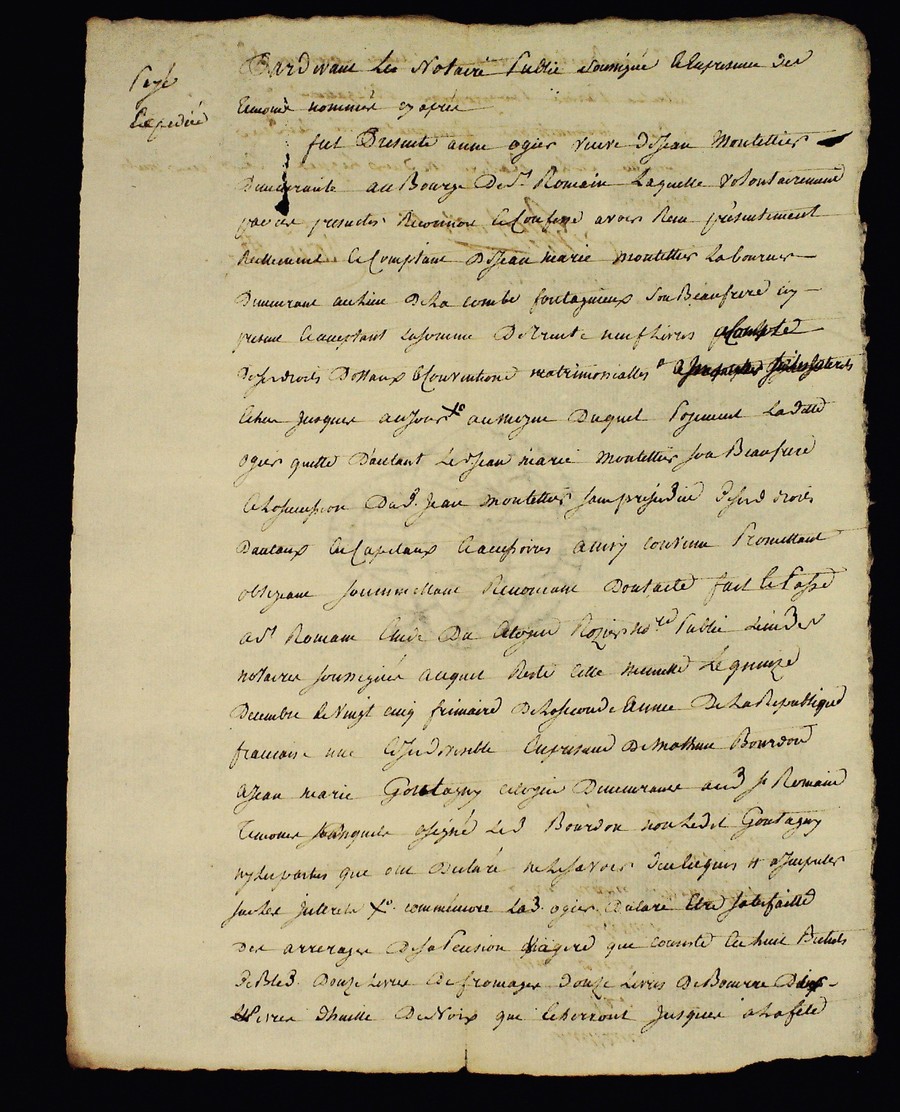 Payé
Expedié
Pardevant Les Notaire Public soussigné Et En presence des
temoins nommés cy apres
fut Presente anne ogier veuve de Jean Montellier
Demeurante au Bourg De St Romain Laquelle volontairement
par ces presentes Reconnoit et Confesse avoir Recu présentement
Reellement et Comptant de Jean marie montellier Laboureur
Demeurant au Lieu De La combe fontagneux son Beaufrere cy
present et acceptant La somme De trente neuf Livres acompte
de ses droits Dottaux et Conventions matrimonialles
Echus jusques au jour Xo au moyen Duquel Payement La ditte
ogier quitte D'autant Led Jean marie Montellier son Beaufrere
et La succession Dud. Jean montellier sans prejudice de ses d droits
Dautaux En Capitaux et accessoires ainsy convenu Promettant
obligeant soummettant Renoncant Dont acte fait et Passé
a St Romain Etude Du Citoyen Rozier nore Public L'un des
notaires soussignés auquel Reste cette minutte Le quinze
Decembre Le vingt cinq frimaire De La seconde année De La Republique
francaise une et indivisible En presence De mathieu Bourdon
et Jean marie Gontagny citoyen Demeurants aud St Romain
Temoins Lesquels a signé Led Bourdon non Ledit Gontagny
ny Les parties que ont Declaré ne Le savoir de ce Requis # a Imputer
sur Les Interets Xo commemore Lad. ogier Declare Etre satisfaitte
Des arrerages De sa Pension viagere que consiste En huit Bichets
De Bled Douze Livres de fromages Douze Livres De Beurre Deux
Livres d'huille De Noix que Echerront jusques a La fete